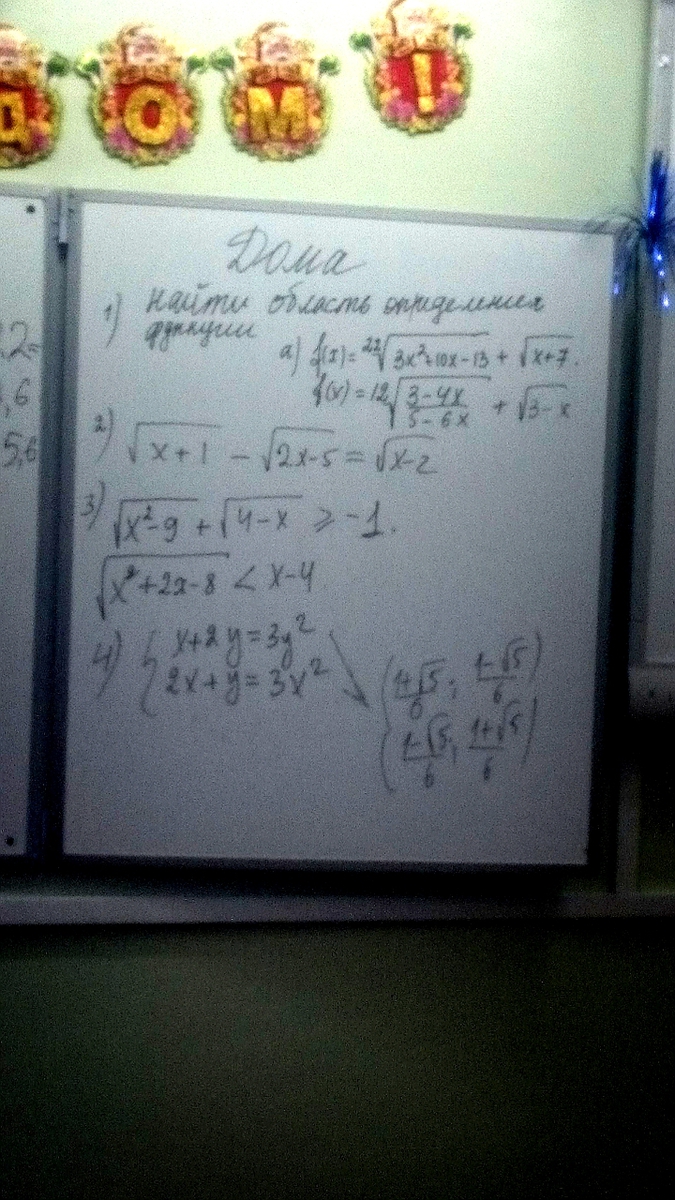 ДОМ!
Дома
1) Найти область определения
функции
а) f(x) = ²²√(3x²+10x-13) + √(x+7).
f(x) = ¹²√((3-4x)/(5-6x)) + √(3-x)
2) √(x+1) - √(2x-5) = √(x-2)
3) √(x²-9) + √(4-x) ≥ -1.
√(x²+2x-8) < x-4
4) { x+2y=3y²
2x+y=3x²
((1+√5)/6; (1-√5)/6)
((1-√5)/6; (1+√5)/6)
2=
,6
5,6